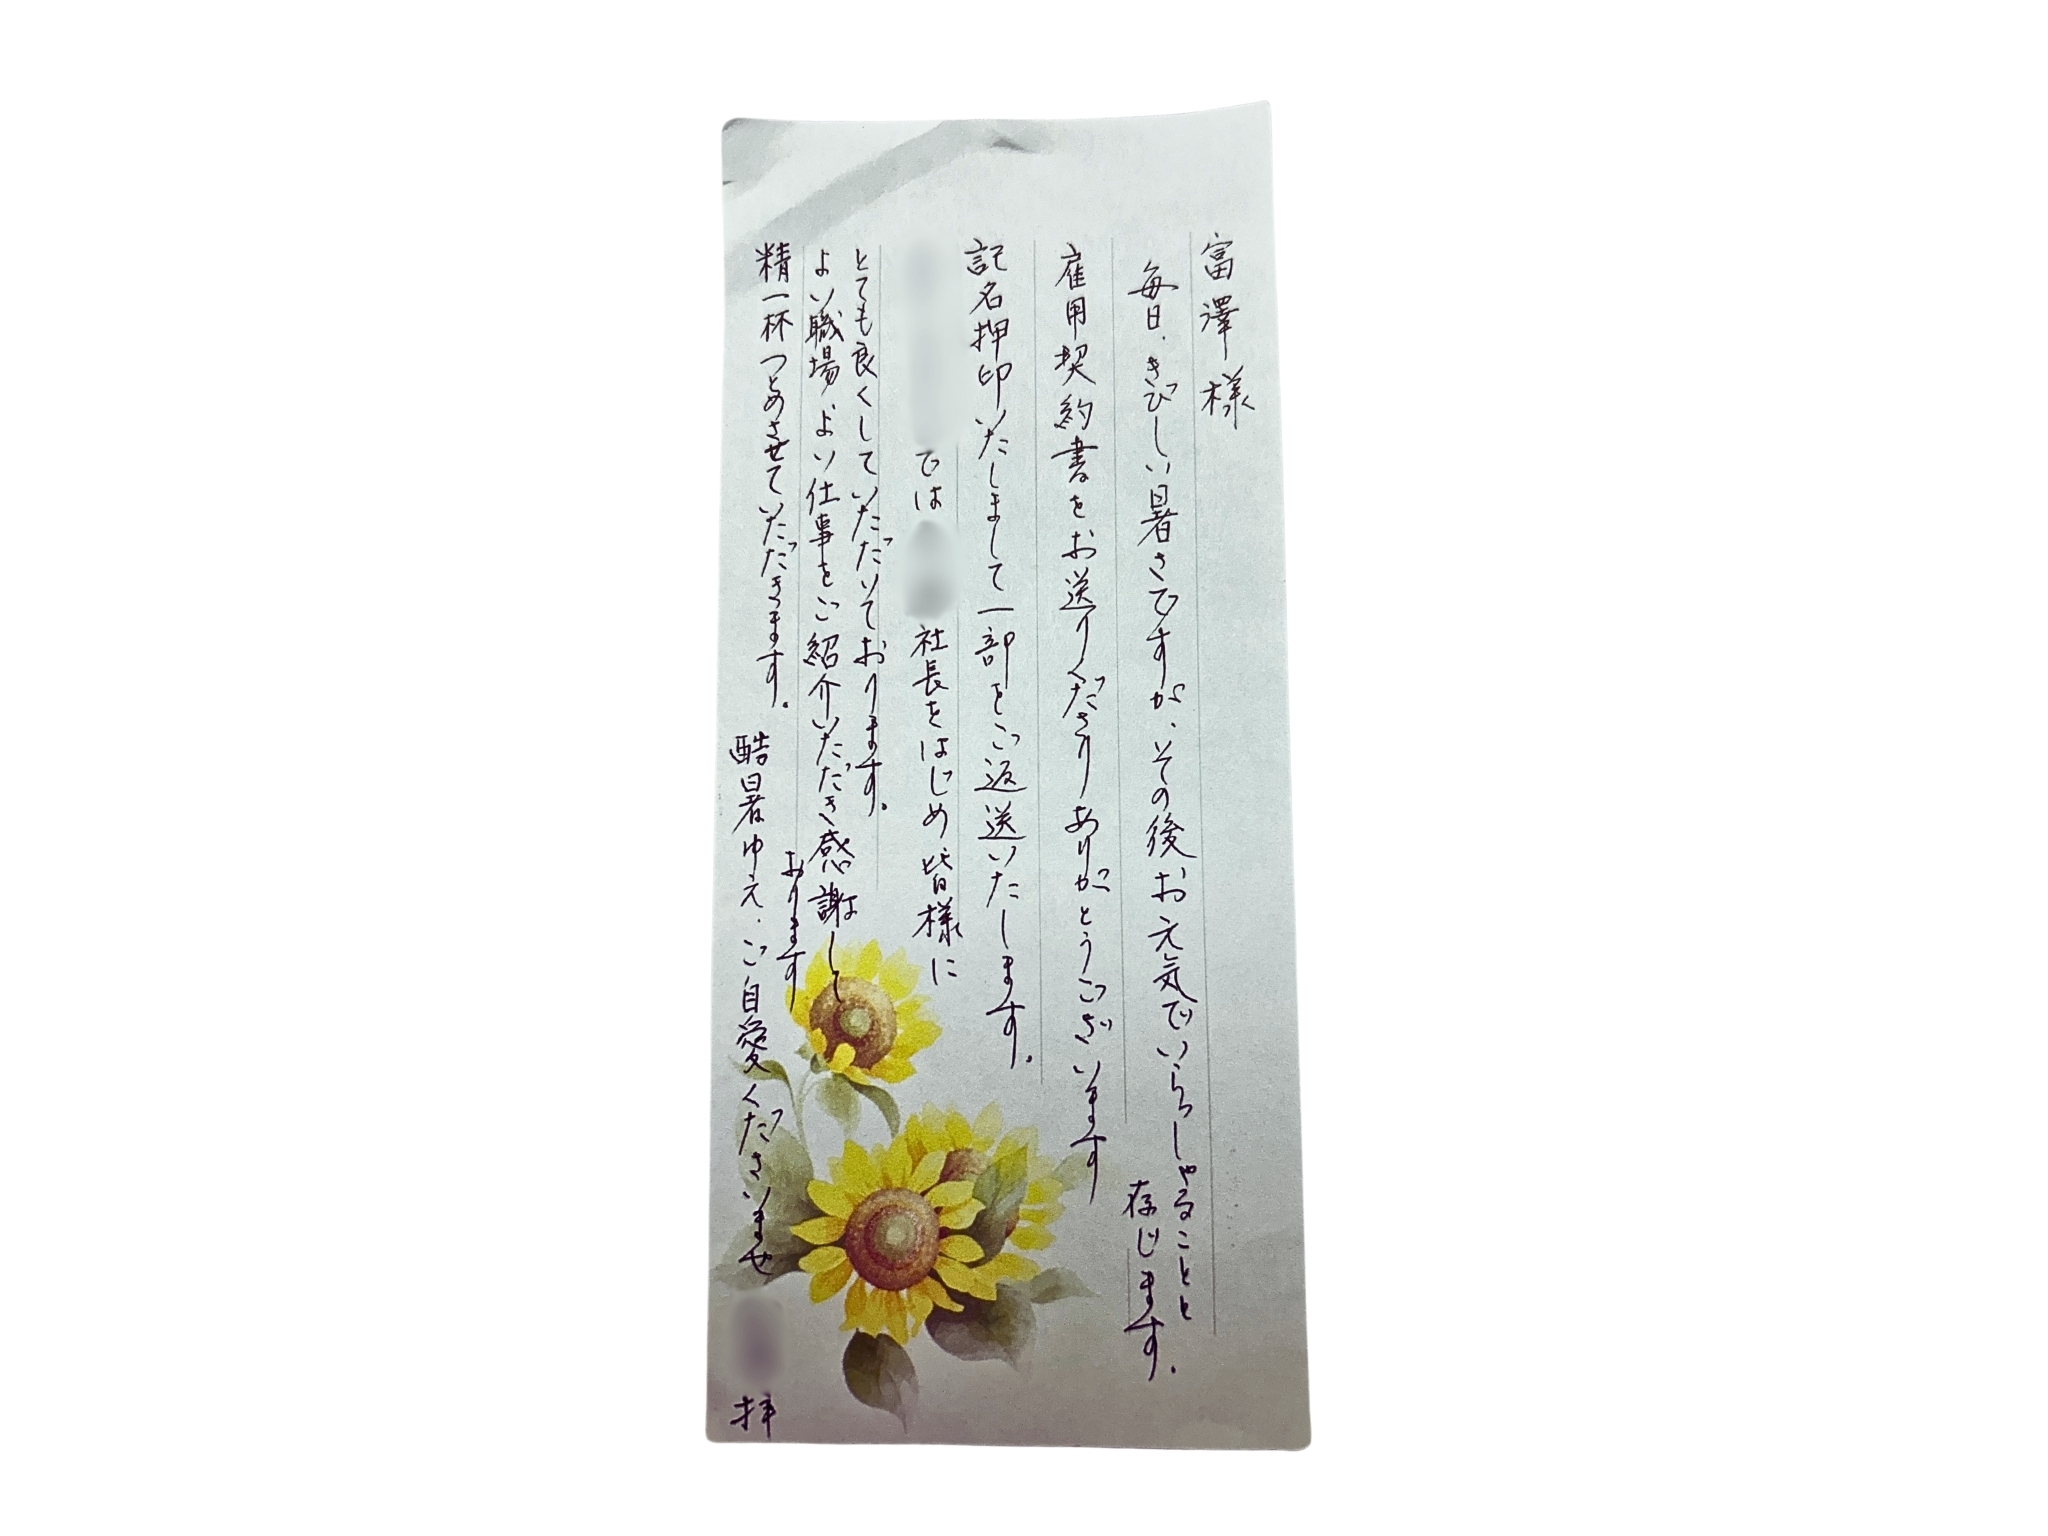 富澤様
毎日、きびしい暑さですが、その後お元気でいらっしゃることと
存じます。
雇用契約書をお送りくださりありがとうございます
記名押印いたしまして一部をご返送いたします。
では 社長をはじめ皆様に
とても良くしていただいております。
よい職場、よい仕事をご紹介いただき感謝して
おります
精一杯つとめさせていただきます。
酷暑ゆえ、ご自愛くださいませ
拝